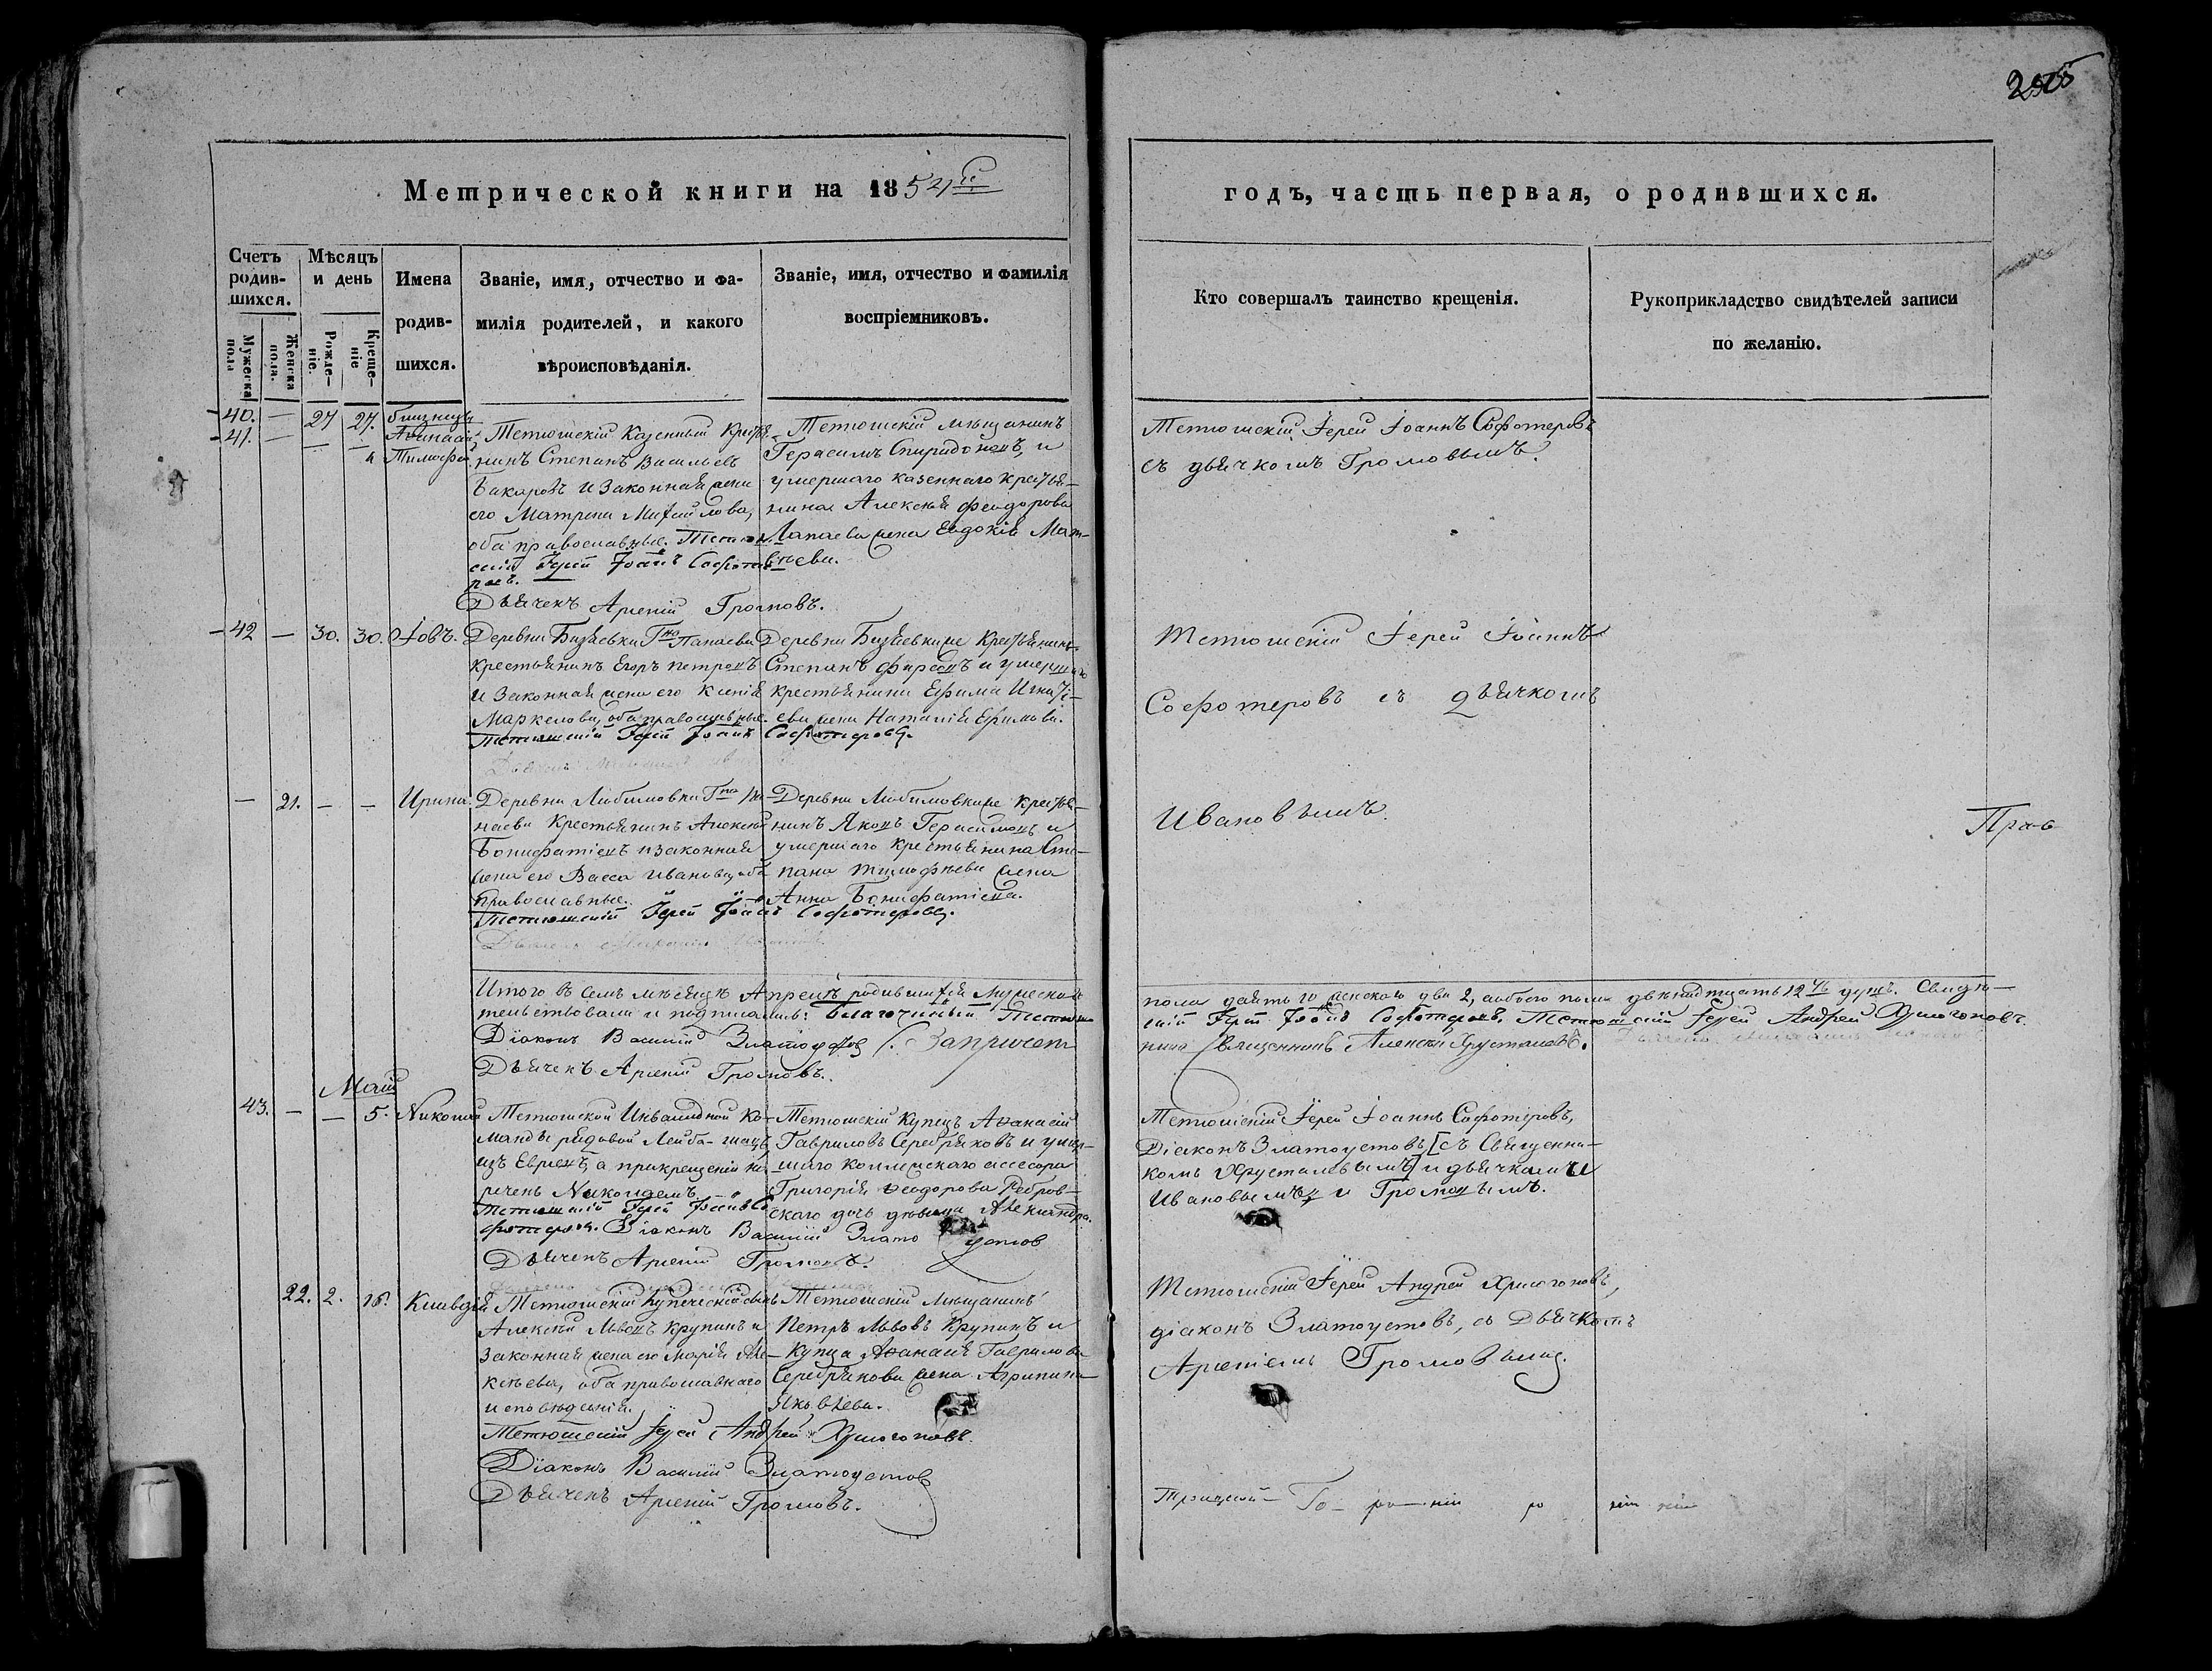 Метрической книги на 1854й
годъ, часть первая, о родившихся.
Счетъ родив-шихся.
Мужеска пола
Женска пола.
Мѣсяцъ и день
Рожде-ніе.
Креще-ніе
Имена
родив-
шихся.
Званіе, имя, отчество и фа-
милія родителей, и какого
вѣроисповѣданія.
Званіе, имя, отчество и фамилія
воспріемниковъ.
Кто совершалъ таинство крещенія.
Рукоприкладство свидѣтелей записи
по желанію.
40. — 27 27. близнецы
41. — — Аѳанасій
Тимофей
Тетюшскій Казенный Крестья-
нинъ Степанъ Васильевъ
Бакаровъ и Законная жена
его Матрена Михайлова,
оба православные. Тетюш-
скій Іерей Іоаннъ Софоте-
ровъ.
Дьячекъ Арсеній Громовъ.
Тетюшскій мѣщанинъ
Герасимъ Спиридоновъ, и
умершаго казеннаго крестья-
нина Алексѣя Феодорова
Лапаева жена Евдокія Мат-
вѣева.
Тетюшскій Іерей Іоаннъ Софотеровъ
съ дьячкомъ Громовымъ.
42 — 30. 30. Іовъ.
Деревни Бизяевки Гна Панаева
крестьянинъ Егоръ Петровъ
и Законная жена его Ксенія
Маркелова, оба православные.
Тетюшскій Іерей Іоаннъ Софотеровъ.
Деревни Бизяевки же Крестьянинъ
Степанъ Фирсовъ и умершаго
крестьянина Ефима Игнаті-
ева жена Наталія Ефимова.
Тетюшскій Іерей Іоаннъ
Софотеровъ съ дьячкомъ
Ивановымъ.
— 21. — — Ирина.
Деревни Любимовки Гна Па-
наева Крестьянинъ Алексѣй
Бонифатіевъ и законная
жена его Васса Иванова, оба
православные.
Тетюшскій Іерей Іоаннъ Софотеровъ.
Деревни Любимовки же Крестья-
нинъ Яковъ Герасимовъ и
умершаго Крестьянина Сте-
пана Тимофѣева жена
Анна Бонифатіева.
Итого въ семъ мѣсяцѣ Апрелѣ родившихся Мужеска
пола десять 10 женскаго два 2, а обоего пола двѣнадцать 12ть душъ. Свидѣ-
тельствовали и подписались: благочинный Тетюш-
скій Іерей Іоаннъ Софотеровъ, Тетюшскій Іерей Андрей Хрисогоновъ.
Діаконъ Василій Златоустов
Священникъ Алексѣй Хрусталевъ.
Дьячекъ Арсеній Громовъ.
Май
43. — — 5. Николай
Тетюшской Инвалидной Ко-
манды рядовой
изъ Евреевъ, а при крещеніи на-
реченъ Николаемъ.
Тетюшскій Іерей Іоаннъ Со-
фотеровъ. Діаконъ Василій Златоустов
Дьячекъ Арсеній Громовъ.
Тетюшскій Купецъ Аѳанасій
Гавриловъ Серебряковъ и умер-
шаго коллежскаго ассесора
Григорія Ѳеодорова Ребров-
скаго дочь дѣвица Александра.
Тетюшскій Іерей Іоаннъ Софотеровъ,
Діаконъ Златоустовъ, [съ Священни-
комъ Хрусталевымъ] и дьячками
Ивановымъ и Громовымъ.
22. 2. 16. Клавдія
Тетюшскій Купеческій сынъ
Алексѣй Львовъ Крупинъ и
Законная жена его Марія Але-
ксѣева, оба православнаго
исповѣданія.
Тетюшскій Іерей Андрей Хрисогоновъ.
Діаконъ Василій Златоустов
Дьячекъ Арсеній Громовъ.
Тетюшскій Мѣщанинъ
Петръ Львовъ Крупинъ и
Купца Аѳанасія Гаврилова
Серебрякова жена Агрипина
Яковлева.
Тетюшскій Іерей Андрей Хрисогоновъ,
діаконъ Златоустовъ, съ Дьячкомъ
Арсеніемъ Громовымъ.